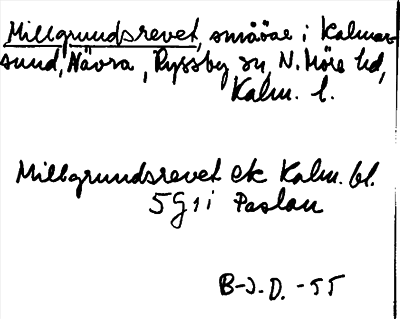 Millgrundsrevet, småöar i Kalmar
sund, Nävra, Ryssby sn, N. Möre hd,
Kalm. l.
Millgrundsrevet ek Kalm. bl.
5G1i Paslau
B-J.D. -55